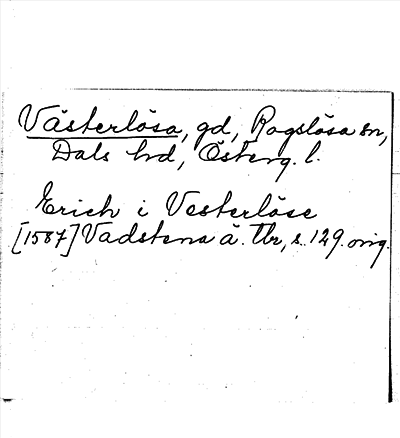 Västerlösa, gd, Rogslösa sn,
Dals hd, Österg. l.
Erich i Vesterlöse
[1587] Vadstena ä. Tbr, s. 129. orig.